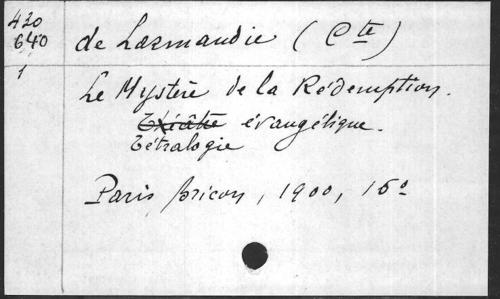 420
640
1
de Larmandie (Cte)
Le Mystère de la Rédemption.
Théâtre évangélique.
Tétralogie
Paris Bricon, 1900, 16º